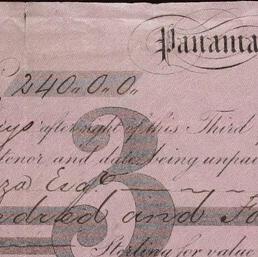 Panama
240,,0,,0,,
after sight of this Third
tenor and date being unpa
za Esqe
ndred and Fo
3
Sterling for value